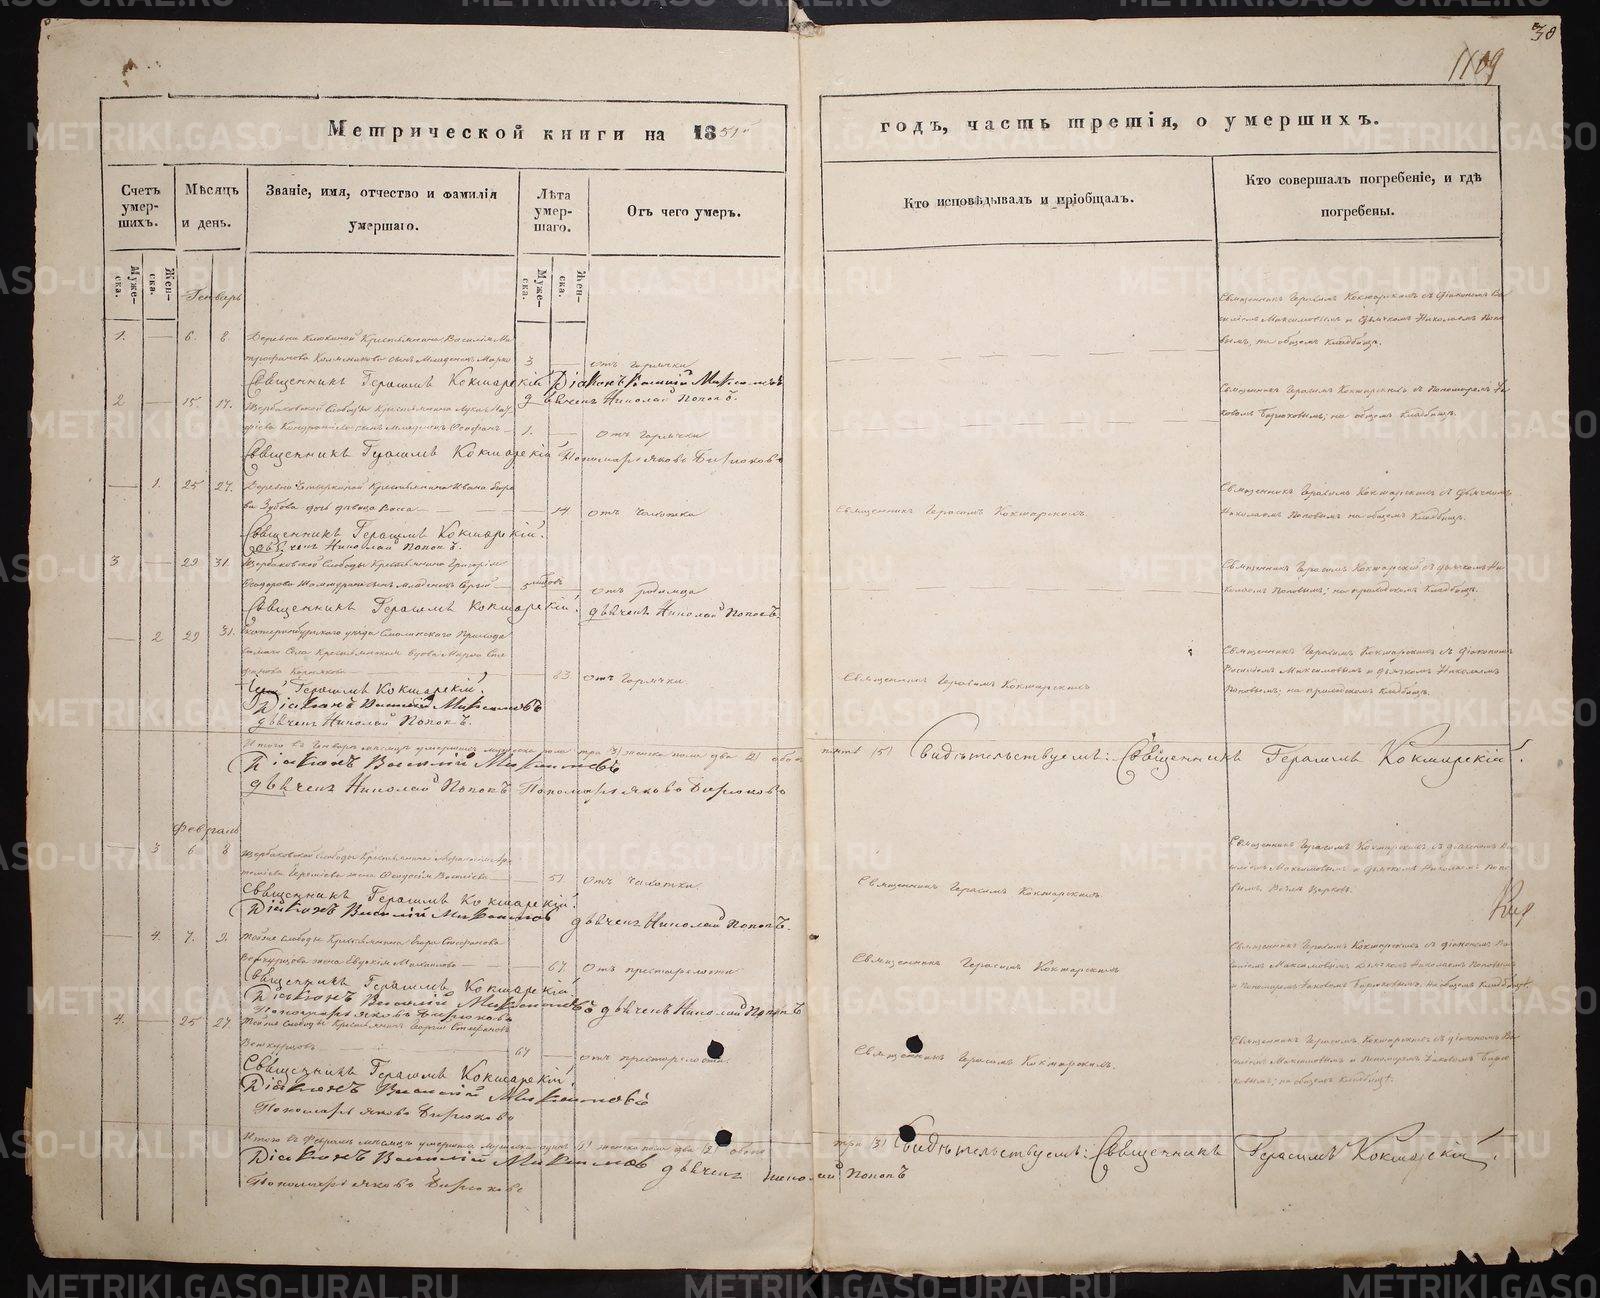 30
1109
Метрической книги на 1851й
годъ, часть третія, о умершихъ.
Счетъ умер-
шихъ.
Муже-
ска.
Жен-
ска.
Мѣсяцъ
и день.
Званіе, имя, отчество и фамилія
умершаго.
Лѣта
умер-
шаго.
Муже-
ска.
Жен-
ска.
Отъ чего умеръ.
Кто исповѣдывалъ и пріобщалъ.
Кто совершалъ погребеніе, и гдѣ
погребены.
Генварь
Священникъ Герасимъ Кокшарскій съ діакономъ Ва-
силіемъ Максимовымъ и дьячкомъ Николаемъ Попо-
вымъ, на общемъ кладбищѣ.
1. 6. 8. Деревни Крестьянина Василія Ми-
трофанова сынъ младенецъ Марко 3 отъ горячки
Священникъ Герасимъ Кокшарскій Діаконъ Василій Максимовъ
дьячекъ Николай Поповъ.
2 15. 17. Щербаковской слободы Крестьянина
сынъ младенецъ 1. отъ горячки
Священникъ Герасимъ Кокшарскій съ Пономаремъ Іа-
ковомъ Бирюковымъ; на общемъ кладбищѣ.
Священникъ Герасимъ Кокшарскій Пономарь Яковъ Бирюковъ
1. 25 27. Деревни Крестьянина Ивана
Зубова дочь дѣвица 14 отъ чахотки
Священникъ Герасимъ Кокшарскій.
Священникъ Герасимъ Кокшарскій съ дьячкомъ
Николаемъ Поповымъ на общемъ кладбищѣ.
Священникъ Герасимъ Кокшарскій.
дьячекъ Николай Поповъ.
3 29 31. Щербаковской слободы Крестьянина Григорія
Ѳеодорова сынъ младенецъ Сергій 5 отъ родимца
Священникъ Герасимъ Кокшарскій съ дьячкомъ Ни-
колаемъ Поповымъ; на приходскомъ кладбищѣ.
Священникъ Герасимъ Кокшарскій. дьячекъ Николай Поповъ.
2 29 31. Екатеринбургскаго уѣзда Смолинскаго прихода
села Крестьянская вдова Марѳа Сте-
фанова 83. отъ горячки.
Священникъ Герасимъ Кокшарскій
Священникъ Герасимъ Кокшарскій съ діакономъ
Василіемъ Максимовымъ и дьячкомъ Николаемъ
Поповымъ; на приходскомъ кладбищѣ.
Герасимъ Кокшарскій.
Діаконъ Василій Максимовъ
дьячекъ Николай Поповъ.
Итого въ Генварѣ мѣсяцѣ умершихъ мужеска пола три (3) женска пола два (2) обоего пять (5) Свидѣтельствуемъ: Священникъ Герасимъ Кокшарскій.
Діаконъ Василій Максимовъ
дьячекъ Николай Поповъ Пономарь Яковъ Бирюковъ
Февраль
3 6 8 Щербаковской слободы Крестьянина
жена Ѳеодосія Васильева 51 отъ чахотки.
Священникъ Герасимъ Кокшарскій.
Священникъ Герасимъ Кокшарскій съ діакономъ Ва-
силіемъ Максимовымъ и дьячкомъ Николаемъ Попо-
вымъ. Возлѣ церкви.
Священникъ Герасимъ Кокшарскій.
Діаконъ Василій Максимовъ дьячекъ Николай Поповъ.
4. 7. 9. Тойже слободы Крестьянина Егора Стефанова
жена Евдокія Михайлова 67 отъ престарѣлости
Священникъ Герасимъ Кокшарскій
Священникъ Герасимъ Кокшарскій съ діакономъ Ва-
силіемъ Максимовымъ дьячкомъ Николаемъ Поповымъ
и Пономаремъ Іаковомъ Бирюковымъ. На общемъ кладбищѣ.
Священникъ Герасимъ Кокшарскій
Діаконъ Василій Максимовъ дьячекъ Николай Поповъ
Пономарь Яковъ Бирюковъ
4. 25 27. Тойже слободы Крестьянинъ Георгій Стефановъ
67 отъ престарѣлости.
Священникъ Герасимъ Кокшарскій.
Священникъ Герасимъ Кокшарскій съ діакономъ Ва-
силіемъ Максимовымъ и Пономаремъ Іаковомъ Бирю-
ковымъ; на общемъ кладбищѣ.
Священникъ Герасимъ Кокшарскій.
Діаконъ Василій Максимовъ
Пономарь Яковъ Бирюковъ
Итого въ Февралѣ мѣсяцѣ умершихъ мужеска одинъ (1) женска пола два (2) обоего три (3) Свидѣтельствуемъ: Священникъ Герасимъ Кокшарскій.
Діаконъ Василій Максимовъ дьячекъ Николай Поповъ
Пономарь Яковъ Бирюковъ
METRIKI.GASO-URAL.RU